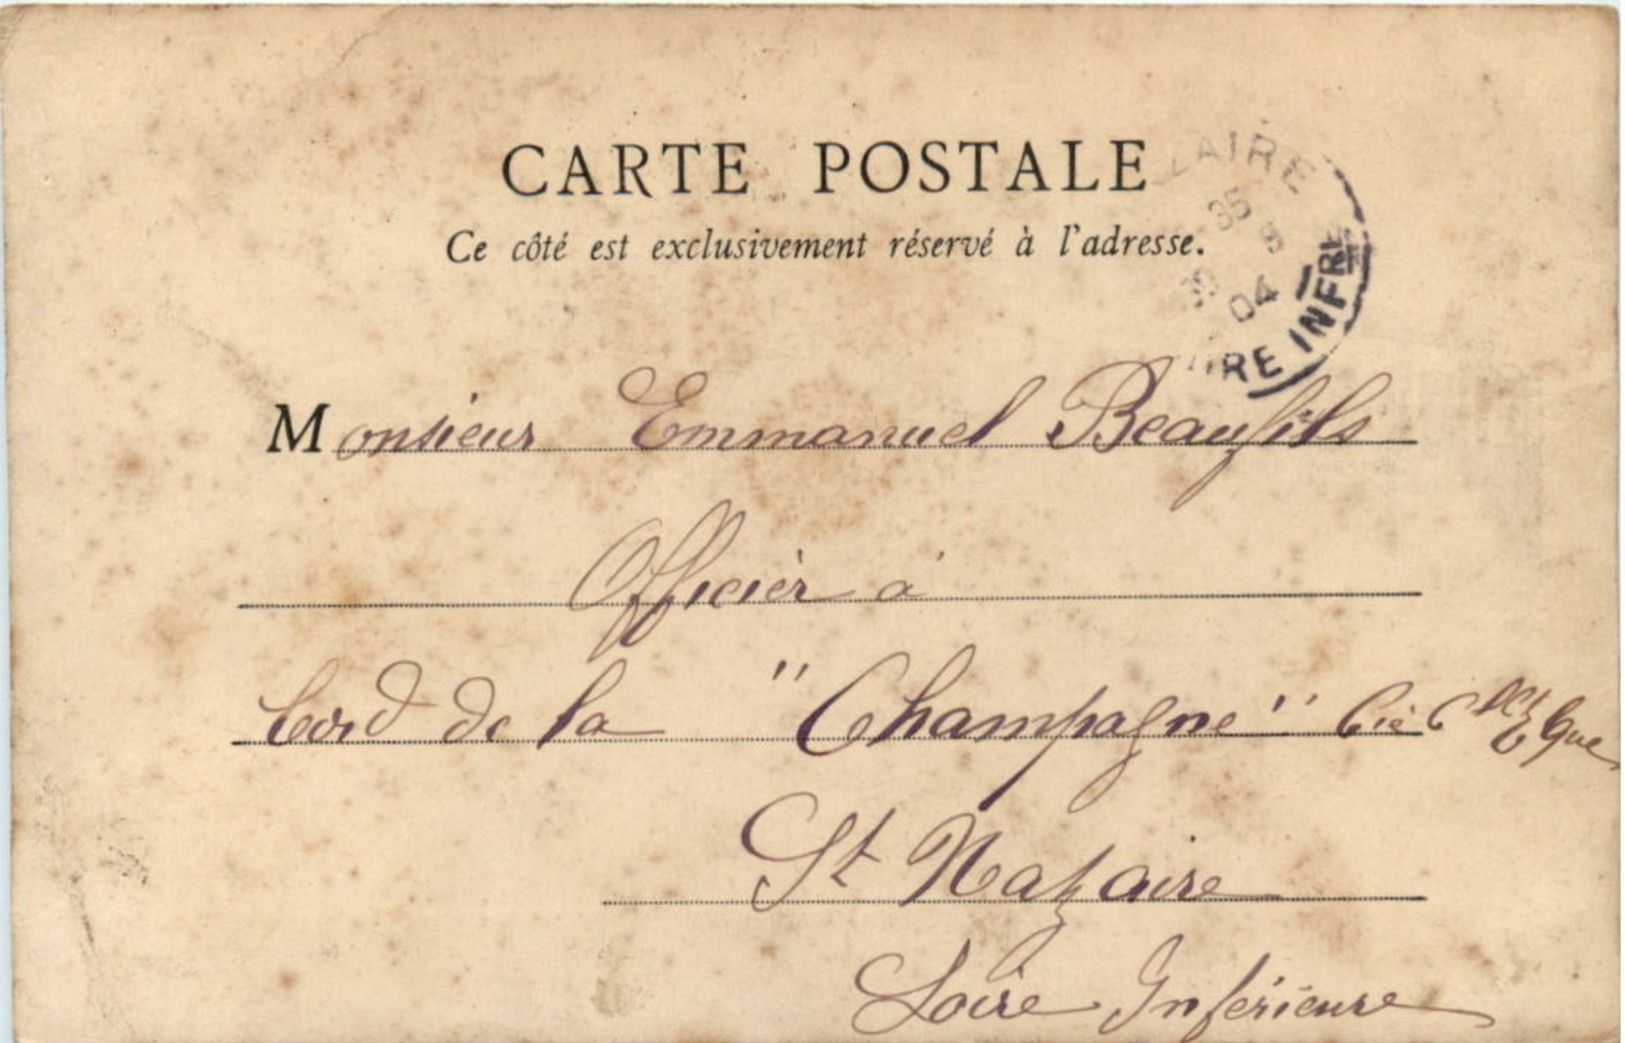 CARTE POSTALE
Ce côté est exclusivement réservé à l'adresse.
AIRE
35
8
04
RE INFRE
Monsieur Emmanuel Beaufils
Officier à
bord de la "Champagne" Cie G
St Nazaire
Loire Inférieure